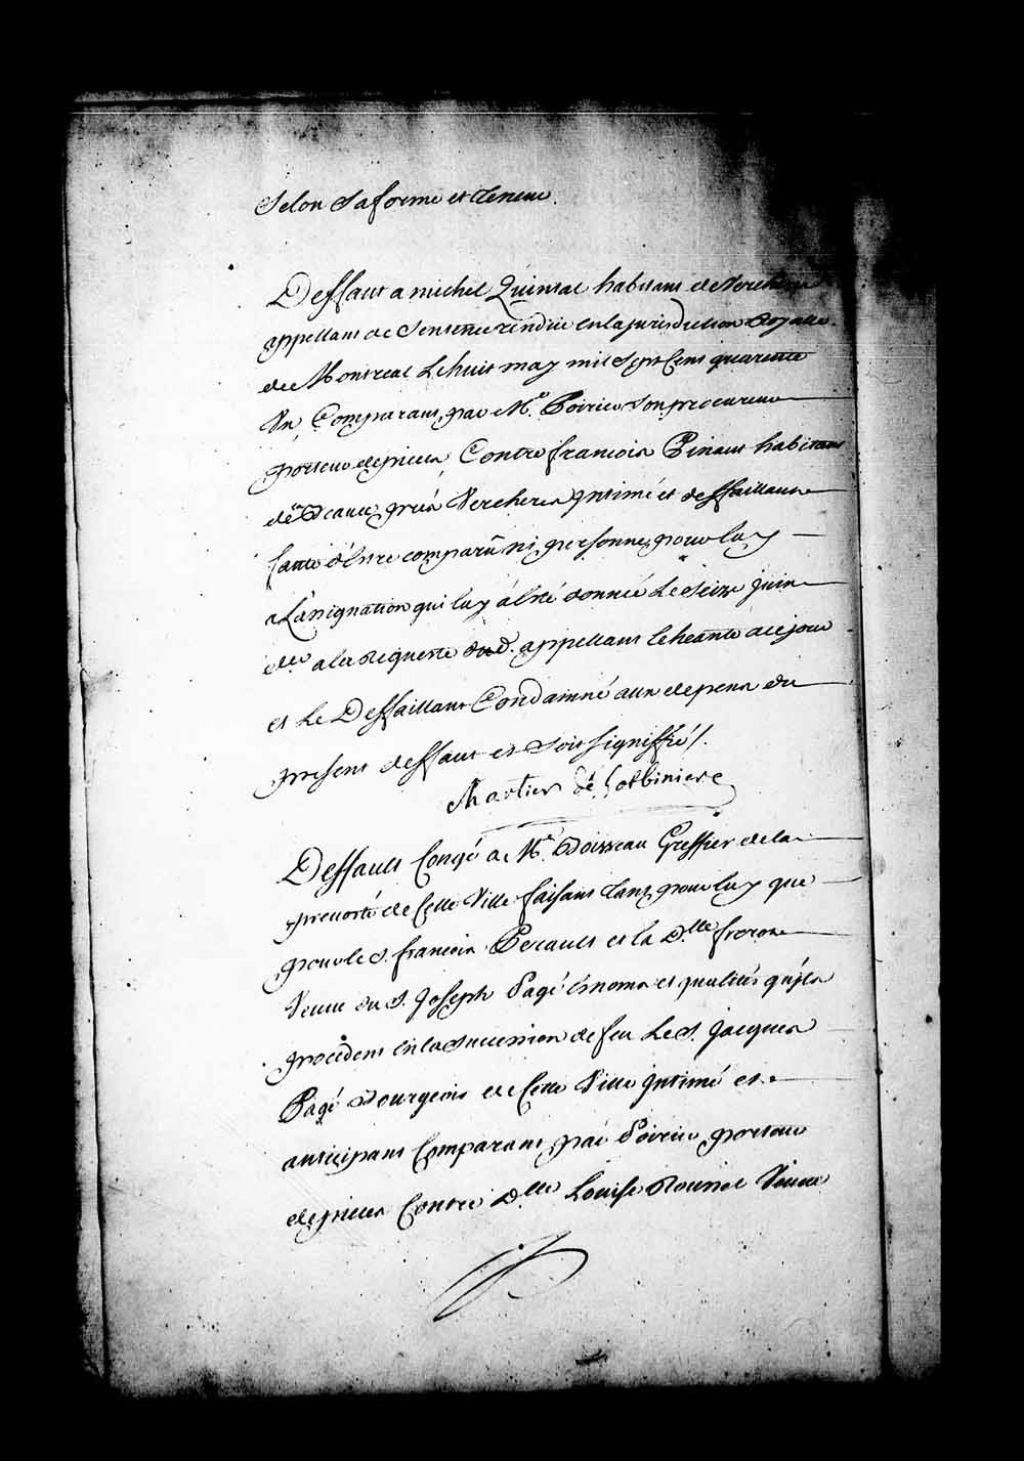 Selon Sa forme et teneur.
Deffaut a michel Quintal habitant de Vercheres
appellant de Sentence rendüe en la jurisdiction Royalle
de Montreal Le huit may mil Sept Cent quarente
Un Comparant par Me. Poirier Son procureur
porteur de pieces Contre francois Pinaut habitant
de prés Vercheres jntimé et deffaillant
faute d'Estre comparû ni personne pour luy
a L'assignation qui luy á Eté donnée Le Seize juin
der. a la Requeste dud. appellant lecheante a ce jour
et Le Deffaillant Condamné aux depens du
present deffaut et Soit Signiffié /.
Chartier de Lotbiniere
Deffaut Congé a Me. Boisseau Greffier de la
prevosté de Cette Ville faisant tant pour luy que
pour le S. francois Perault et la D.lle
Veuve du S. Joseph Pagé Es noms et qualités qu'jls
procedent en la Succession de feu Le S. Jacques
Pagé Bourgeois de Cette Ville jntimé et
anticipant Comparant par Poirier porteur
de pieces Contre D.lle Louise Roussel Veuve